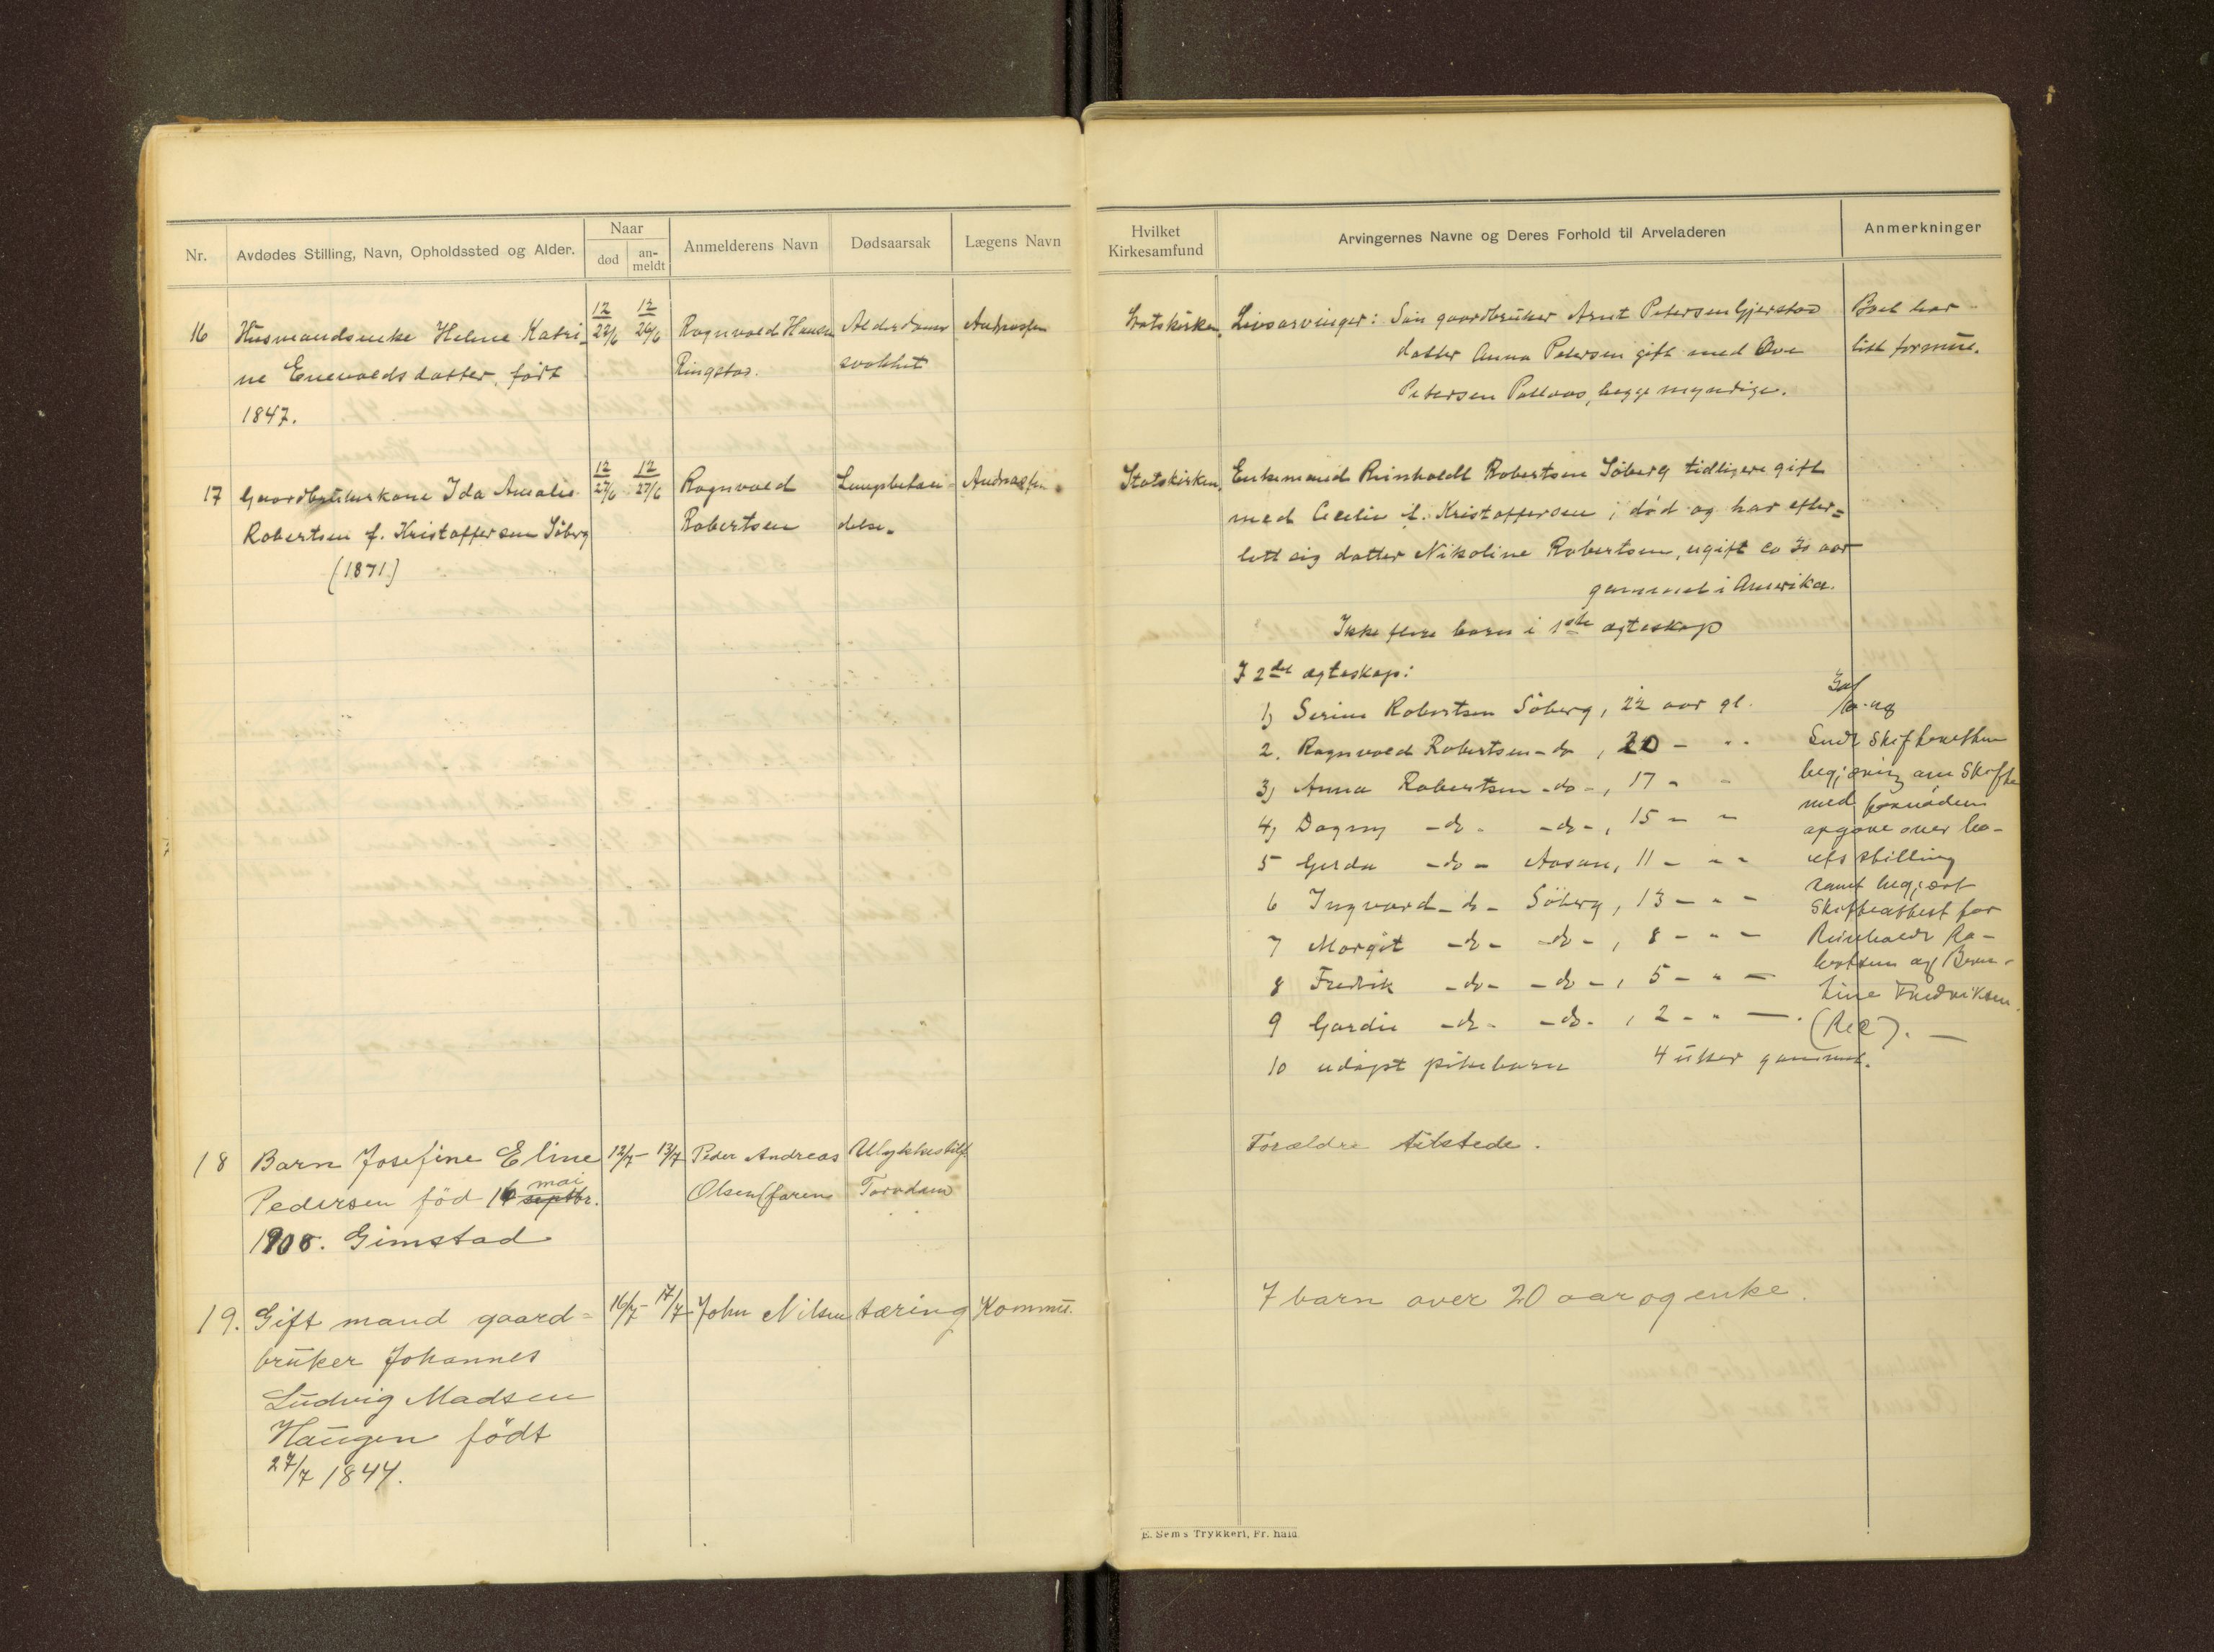 Nr.
Avdødes Stilling, Navn, Opholdssted og Alder.
Naar
død
an-
meldt
Anmelderens Navn
Dødsaarsak
Lægens Navn
16
Husmandsenke Helene Katri-
ne Enevoldsdatter, født
1847.
12
22/6
12
26/6
Ragnvald Hansen
Ringstad.
Alderdoms
svakhet
Andreassen
17
Gaardbrukerkone Ida Amalie
Robertsen f. Kristoffersen Söberg
(1871)
12
27/6
12
27/6
Ragnvald
Robertsen
Lungebetæn
delse.
Andreassen
18
Barn Josefine Eline
Pedersen föd 16 mai septbr.
1908. Gimstad
12/7 - 13/7
Peder Andreas
Olsen (faren
Ulykkestilf
Torvdam
19.
Gift mand gaard=
bruker Johannes
Ludvig Madsen
Haugen född
27/7 1844.
16/7 - 17/7
John Nilsen
tæring
Kommu.
Hvilket
Kirkesamfund
Arvingernes Navne og Deres Forhold til Arveladeren
Anmerkninger
Statskirken.
Livsarvinger: Sön gaardbruker Arnt Petersen Gjerstad
datter Anna Petersen gift med Ove
Petersen, begge myndige.
Boet har
litt formue.
Statskirken.
Enkemand Reinholdt Robertsen Söberg tidligere gift
med Cecilie f. Kristoffersen, död og har efter=
latt sig datter Nikoline Robertsen, ugift ca 30 aar
gammel i Amerika.
Ikke flere barn i 1ste egteskap
I 2det egteskap:
1) Serine Robertsen Söberg, 22 aar gl.
2. Ragnvald Robertsen - do , 20 - "
3) Anna Robertsen - do -, 17 - "
4) Dagny - do - - do -, 15 - -
5 Gerda - do - Aasan, 11 - " -
6 Ingvard - do - Söberg, 13 - " -
7 Margit - do - - do -, 8 - " -
8 Fredrik - do - - do -, 5 - " -
9 Gardie - do - - do -, 2 - " -.
10 udöpt pikebarn 4 uker gammel.
Sendt Skifteretten
begjæring om Skifte
med fornöden
opgave over bo-
ets stilling
samt begjært
Skifteattest for
Reinholdt Ro-
bertsen og
Fredriksen.
Forældre tilstede.
7 barn over 20 aar og enke.
E. Sem's Trykkeri, Fr.hald